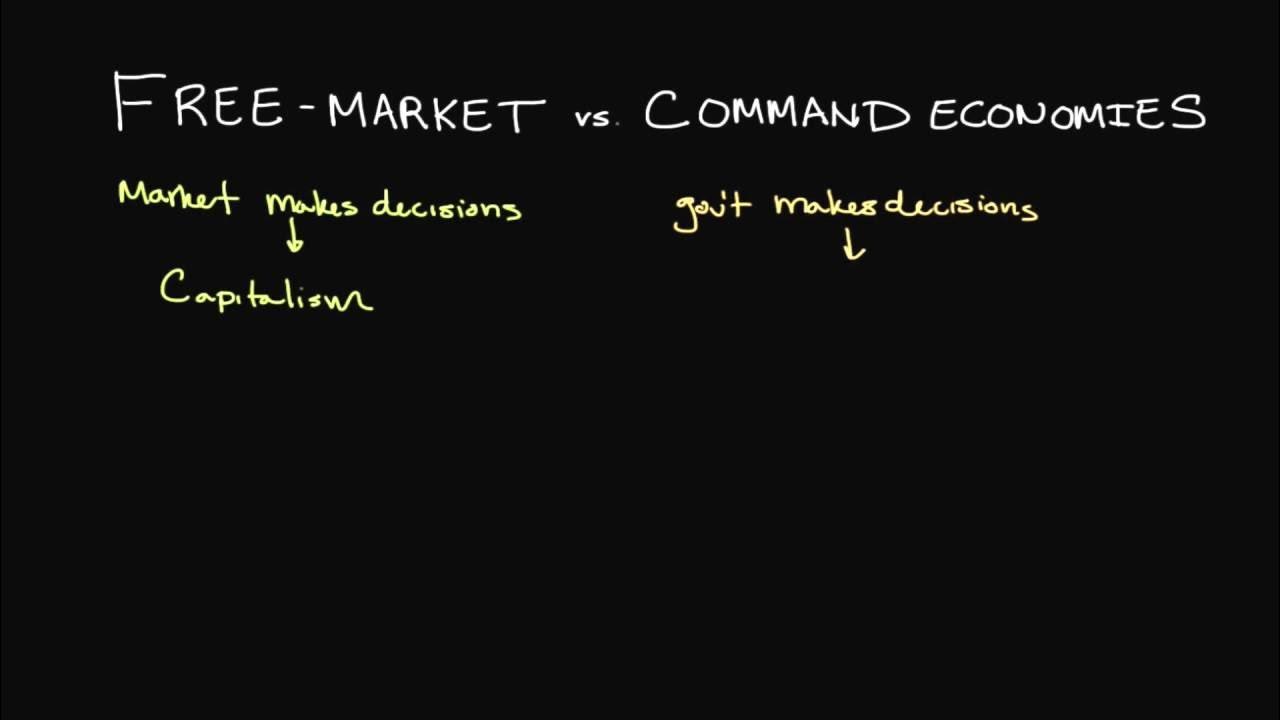 FREE-MARKET vs. COMMAND ECONOMIES
Market makes decisions
gov't makes decisions
Capitalism